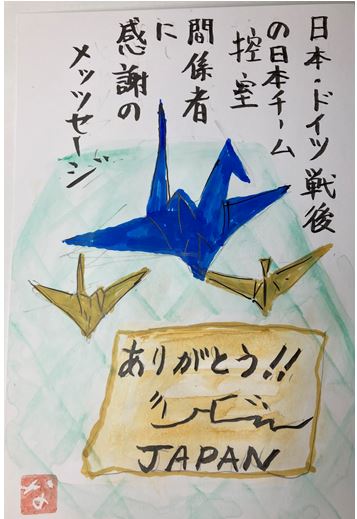 日本・ドイツ戦後
の日本チーム
控室
間係者
に
感謝の
メッツセージ
ありがとう!!
JAPAN
な